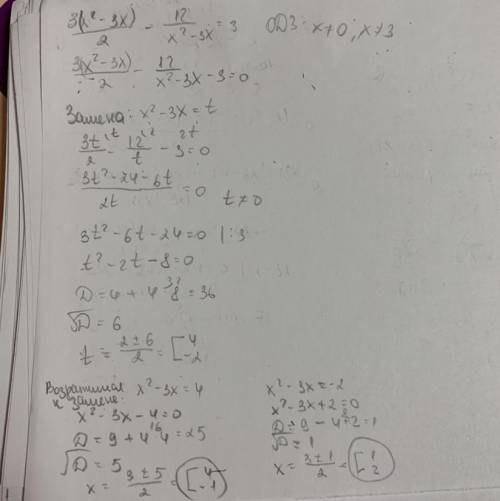 3(x²-3x)/2 - 12/(x²-3x) = 3 ОДЗ: x≠0, x≠3
3(x²-3x)/2 - 12/(x²-3x) - 3 = 0
Замена: x²-3x = t
3t/2 - 12/t - 3 = 0
(3t²-24-6t)/2t = 0 t≠0
3t²-6t-24=0 |:3
t²-2t-8=0
D=4+4·8=36
√D=6
t = (2±6)/2 = [4 -2
Возвратимся к замене: x²-3x=4
x²-3x-4=0
D=9+4·4=25
√D=5
x = (3±5)/2 = [4 -1
x²-3x=-2
x²-3x+2=0
D=9-4·2=1
√D=1
x = (3±1)/2 = [1 2